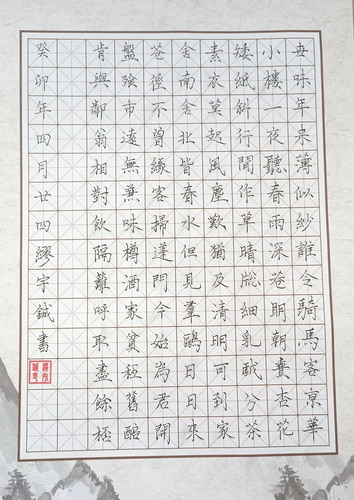 世味年来薄似紗誰令騎馬客京華
小樓一夜聽春雨深巷明朝賣杏花
矮紙斜行閒作草晴牎細乳戲分茶
素衣莫起風塵歎猶及清明可到家
舍南舍北皆春水但見羣鷗日日來
花徑不曾緣客掃蓬門今始為君開
盤飱市遠無兼味樽酒家貧秖舊醅
肯與鄰翁相對飲隔籬呼取盡餘杯
癸卯年四月廿四繆宇鋮書